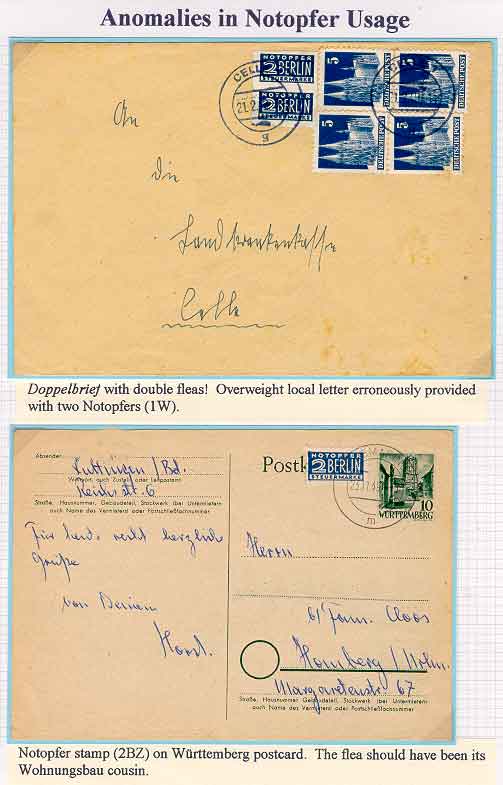 Anomalies in Notopfer Usage
NOTOPFER
2 BERLIN
STEUERMARKE
NOTOPFER
2 BERLIN
STEUERMARKE
CELL
21.2.
g
5
DEUTSCHE POST
5
DEUTSCHE POST
5
DEUTSCHE POST
5
DEUTSCHE POST
An
die
Landkrankenkasse
Celle
Doppelbrief with double fleas! Overweight local letter erroneously provided
with two Notopfers (1W).
Absender:
/Bd.
Wohnort, auch Zustell- oder Leitpostamt
6
Straße, Hausnummer, Gebäudeteil, Stockwerk bei Untermietern
auch Name des Vermieters oder Postschließfachnummer
Für heute recht herzlich
Grüße
von Deinem
Horst.
Postk
NOTOPFER
2 BERLIN
STEUERMARKE
m
10
WÜRTTEMBERG
Herrn
Cloos
Homberg /
Margaretenstr. 67
Straße, Hausnummer, Gebäudeteil, Stockwerk bei Untermietern
auch Name des Vermieters oder Postschließfachnummer
Notopfer stamp (2BZ) on Württemberg postcard. The flea should have been its
Wohnungsbau cousin.